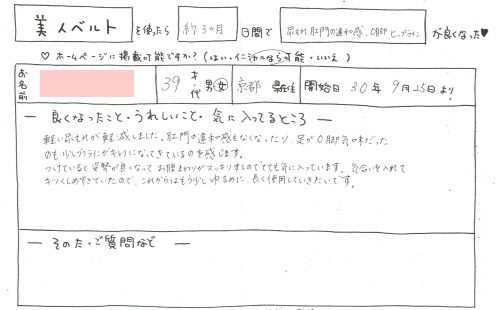 美人ベルト を使たら 約3ヶ月 日間で 尿もれ 肛門の違和感、O脚 ヒップライン が良くなった♡
♡ ホームページに掲載可能ですか？（はい・イニシャルなら可能・いいえ）
お名前 39 才 代 男・女 京都 県在住 開始日 30年 9月25日より
― 良くなったこと・うれしいこと・気に入ってるところ ―
軽い尿もれが軽減しました。肛門の違和感もなくなったり、足がO脚気味だった
のも少しづつラインがキレイになってきているのを感じます。
つけていると姿勢が良くなって、お腹まわりがスッキリするのでとても気に入っています。気合いを入れて
キツくしめすぎていたので、これからはもう少しゆるめに、長く使用していきたいです。
― その他・ご質問など ―